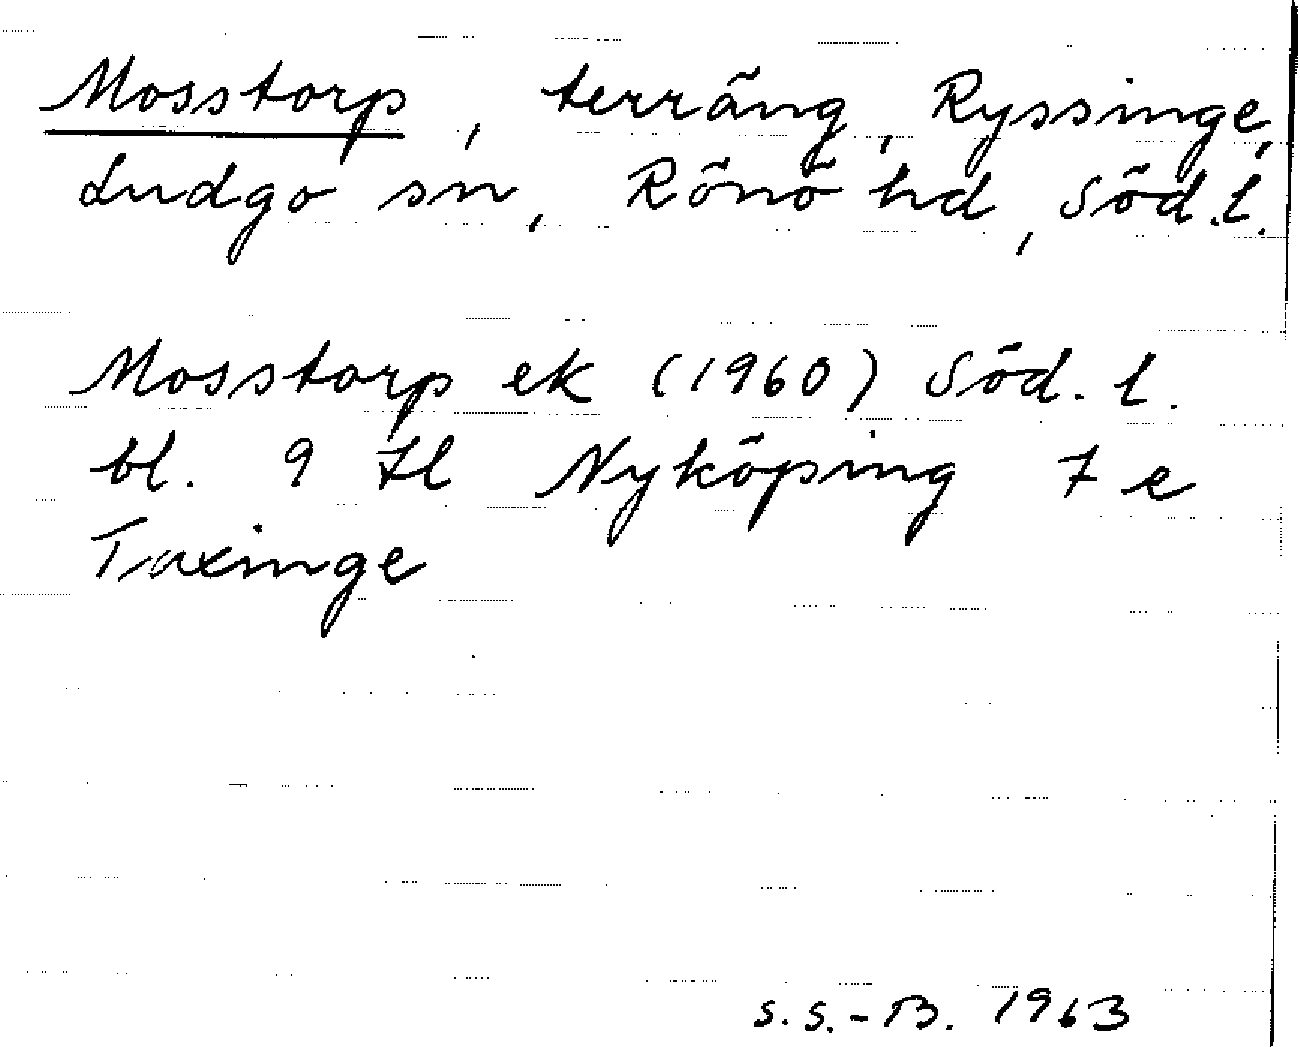 Mosstorp, terräng, Ryssinge,
Ludgo sn, Rönö hd, Söd.l.
Mosstorp ek (1960) Söd. l.
bl. 9 H Nyköping 7 e
Taxinge
S.S.-B. 1963